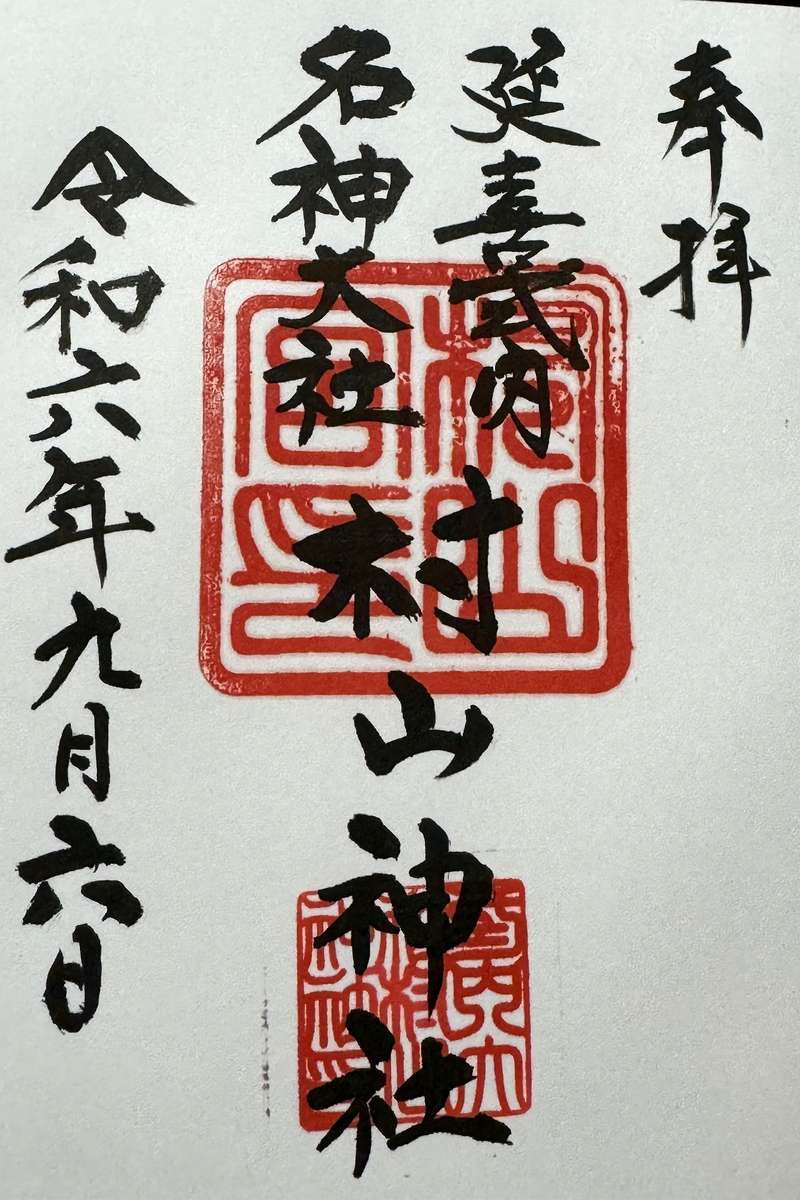 奉拝
延喜式内
名神大社
村山神社
令和六年九月六日